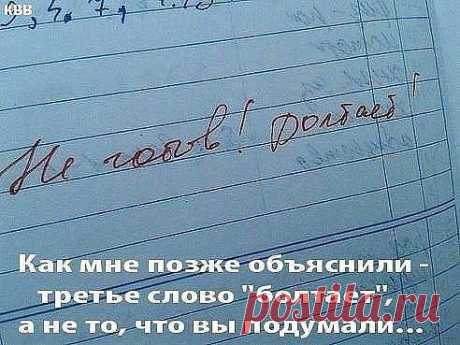 КВВ
Не готов! Болтает!
Как мне позже объяснили -
третье слово "болтает",
а не то, что вы подумали...
postila.ru